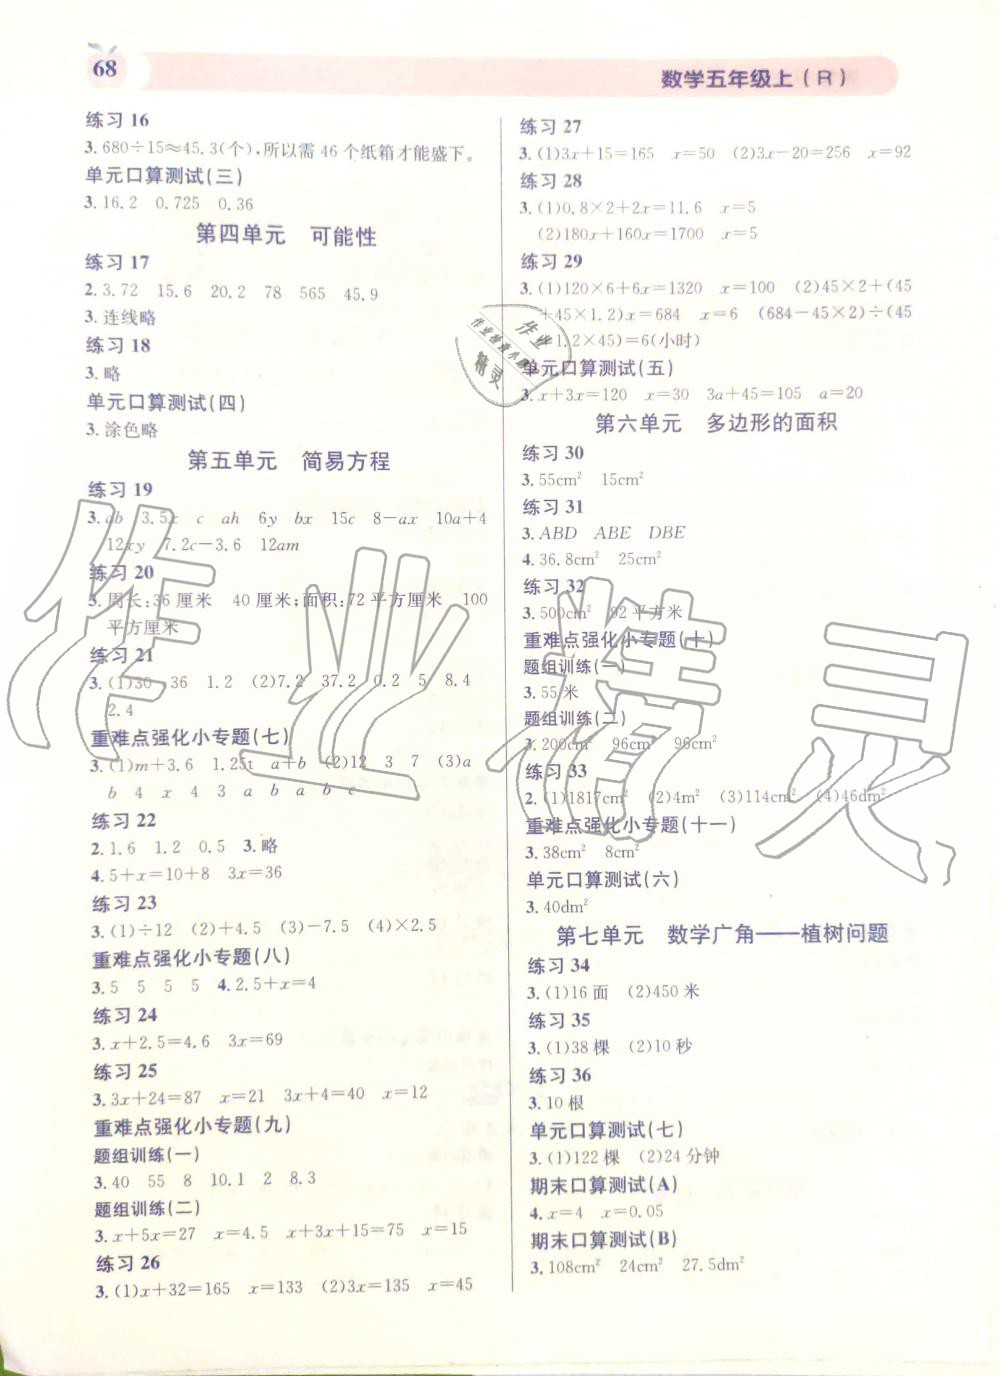 68
数学五年级上(R)
练习 16
3. 680÷15≈45.3(个),所以需 46 个纸箱才能盛下。
单元口算测试(三)
3. 16.2 0.725 0.36
第四单元 可能性
练习 17
2. 3.72 15.6 20.2 78 565 45.9
3. 连线略
练习 18
3. 略
单元口算测试(四)
3. 涂色略
第五单元 简易方程
练习 19
3. ab 3.5x c ah 6y bx 15c 8-ax 10a+4
12xy 7.2c-3.6 12am
练习 20
3. 周长:36 厘米 40 厘米;面积:72 平方厘米 100
平方厘米
练习 21
3. (1)30 36 1.2 (2)7.2 37.2 0.2 5 8.4
2.4
重难点强化小专题(七)
3. (1)m+3.6 1.25t a+b (2)12 3 7 (3)a
b 4 x 4 3 a b a b c
练习 22
2. 1.6 1.2 0.5 3. 略
4. 5+x=10+8 3x=36
练习 23
3. (1)÷12 (2)+4.5 (3)-7.5 (4)×2.5
重难点强化小专题(八)
3. 5 5 5 5 4. 2.5+x=4
练习 24
3. x+2.5=4.6 3x=69
练习 25
3. 3x+24=87 x=21 3x+4=40 x=12
重难点强化小专题(九)
题组训练(一)
3. 40 55 8 10.1 2 8.3
题组训练(二)
3. x+5x=27 x=4.5 x+3x+15=75 x=15
练习 26
3. (1)x+32=165 x=133 (2)3x=135 x=45
练习 27
3. (1)3x+15=165 x=50 (2)3x-20=256 x=92
练习 28
3. (1)0.8×2+2x=11.6 x=5
(2)180x+160x=1700 x=5
练习 29
3. (1)120×6+6x=1320 x=100 (2)45×2+(45
+45×1.2)x=684 x=6 (684-45×2)÷(45
1.2×45)=6(小时)
单元口算测试(五)
3. x+3x=120 x=30 3a+45=105 a=20
第六单元 多边形的面积
练习 30
3. 55cm² 15cm²
练习 31
3. ABD ABE DBE
4. 36.8cm² 25cm²
练习 32
3. 500cm² 92 平方米
重难点强化小专题(十)
题组训练(一)
3. 55 米
题组训练(二)
3. 200cm² 96cm² 96cm²
练习 33
2. (1)1817cm² (2)4m² (3)114cm² (4)46dm²
重难点强化小专题(十一)
3. 38cm² 8cm²
单元口算测试(六)
3. 40dm²
第七单元 数学广角——植树问题
练习 34
3. (1)16 面 (2)450 米
练习 35
3. (1)38 棵 (2)10 秒
练习 36
3. 10 根
单元口算测试(七)
3. (1)122 棵 (2)24 分钟
期末口算测试(A)
4. x=4 x=0.05
期末口算测试(B)
3. 108cm² 24cm² 27.5dm²
作业精灵